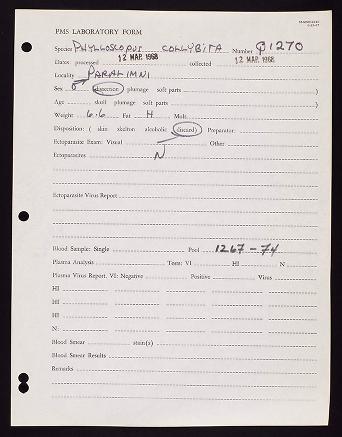 PMS LABORATORY FORM
Species PHYLLOSCOPUS COLLYBITA Number Q1270
Dates processed 12 MAR. 1968 collected 12 MAR. 1968
Locality PARALIMNI
Sex ♂ (dissection plumage soft parts )
Age skull plumage soft parts )
Weight 6.6 Fat H Molt
Disposition: ( skin skelton alcoholic discard) Preparator:
Ectoparasite Exam: Visual Other
Ectoparasites N
Ectoparasite Virus Report
Blood Sample: Single Pool 1267-74
Plasma Analysis Tests: VI HI N
Plasma Virus Report, VI: Negative Positive Virus
HI
HI
HI
N:
Blood Smear stain(s)
Blood Smear Results
Remarks